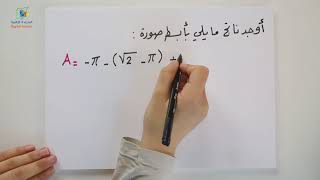 أوجد ناتج ما يلي بأبسط صورة :
A = -π - (√2 - π) +